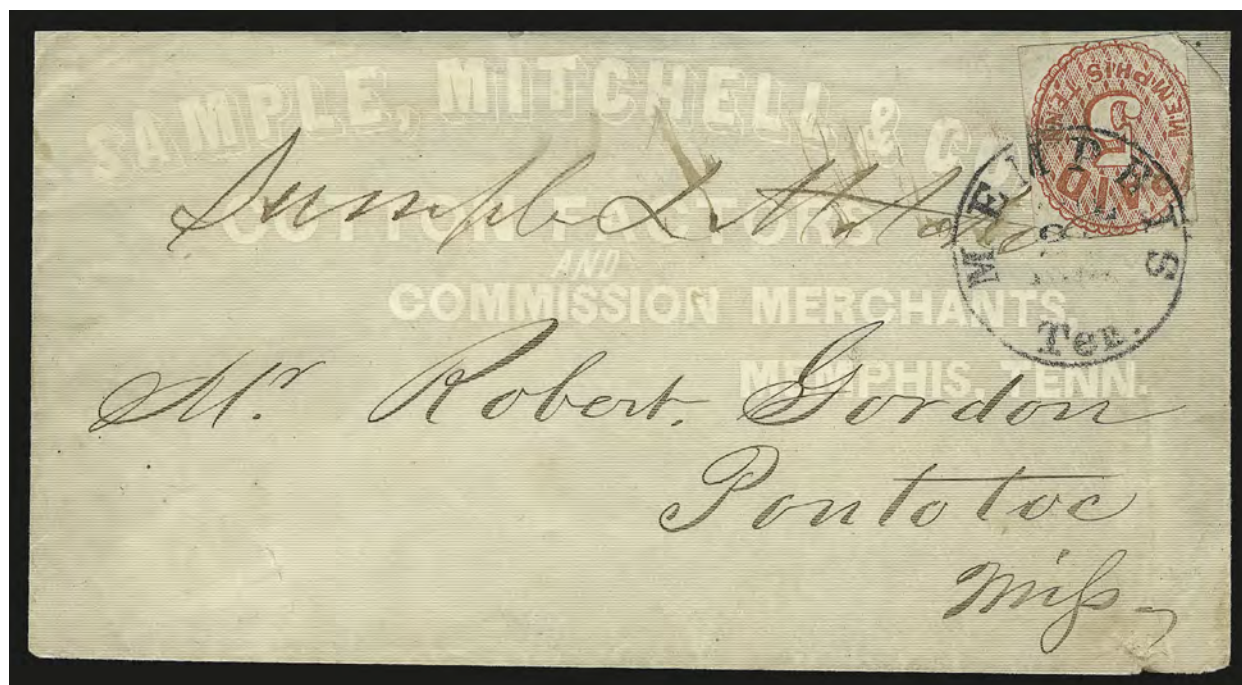 SAMPLE, MITCHELL & CO
Sample Mitchell & Co
COTTON FACTORS
AND
COMMISSION MERCHANTS,
MEMPHIS, TENN.
MEMPHIS TENN
5
PAID
MEMPHIS
Ten.
Mr. Robert. Gordon
Pontotoc
Miss